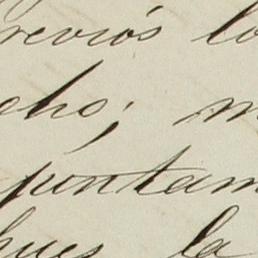 previós lo
cho; m
puntam
hues la